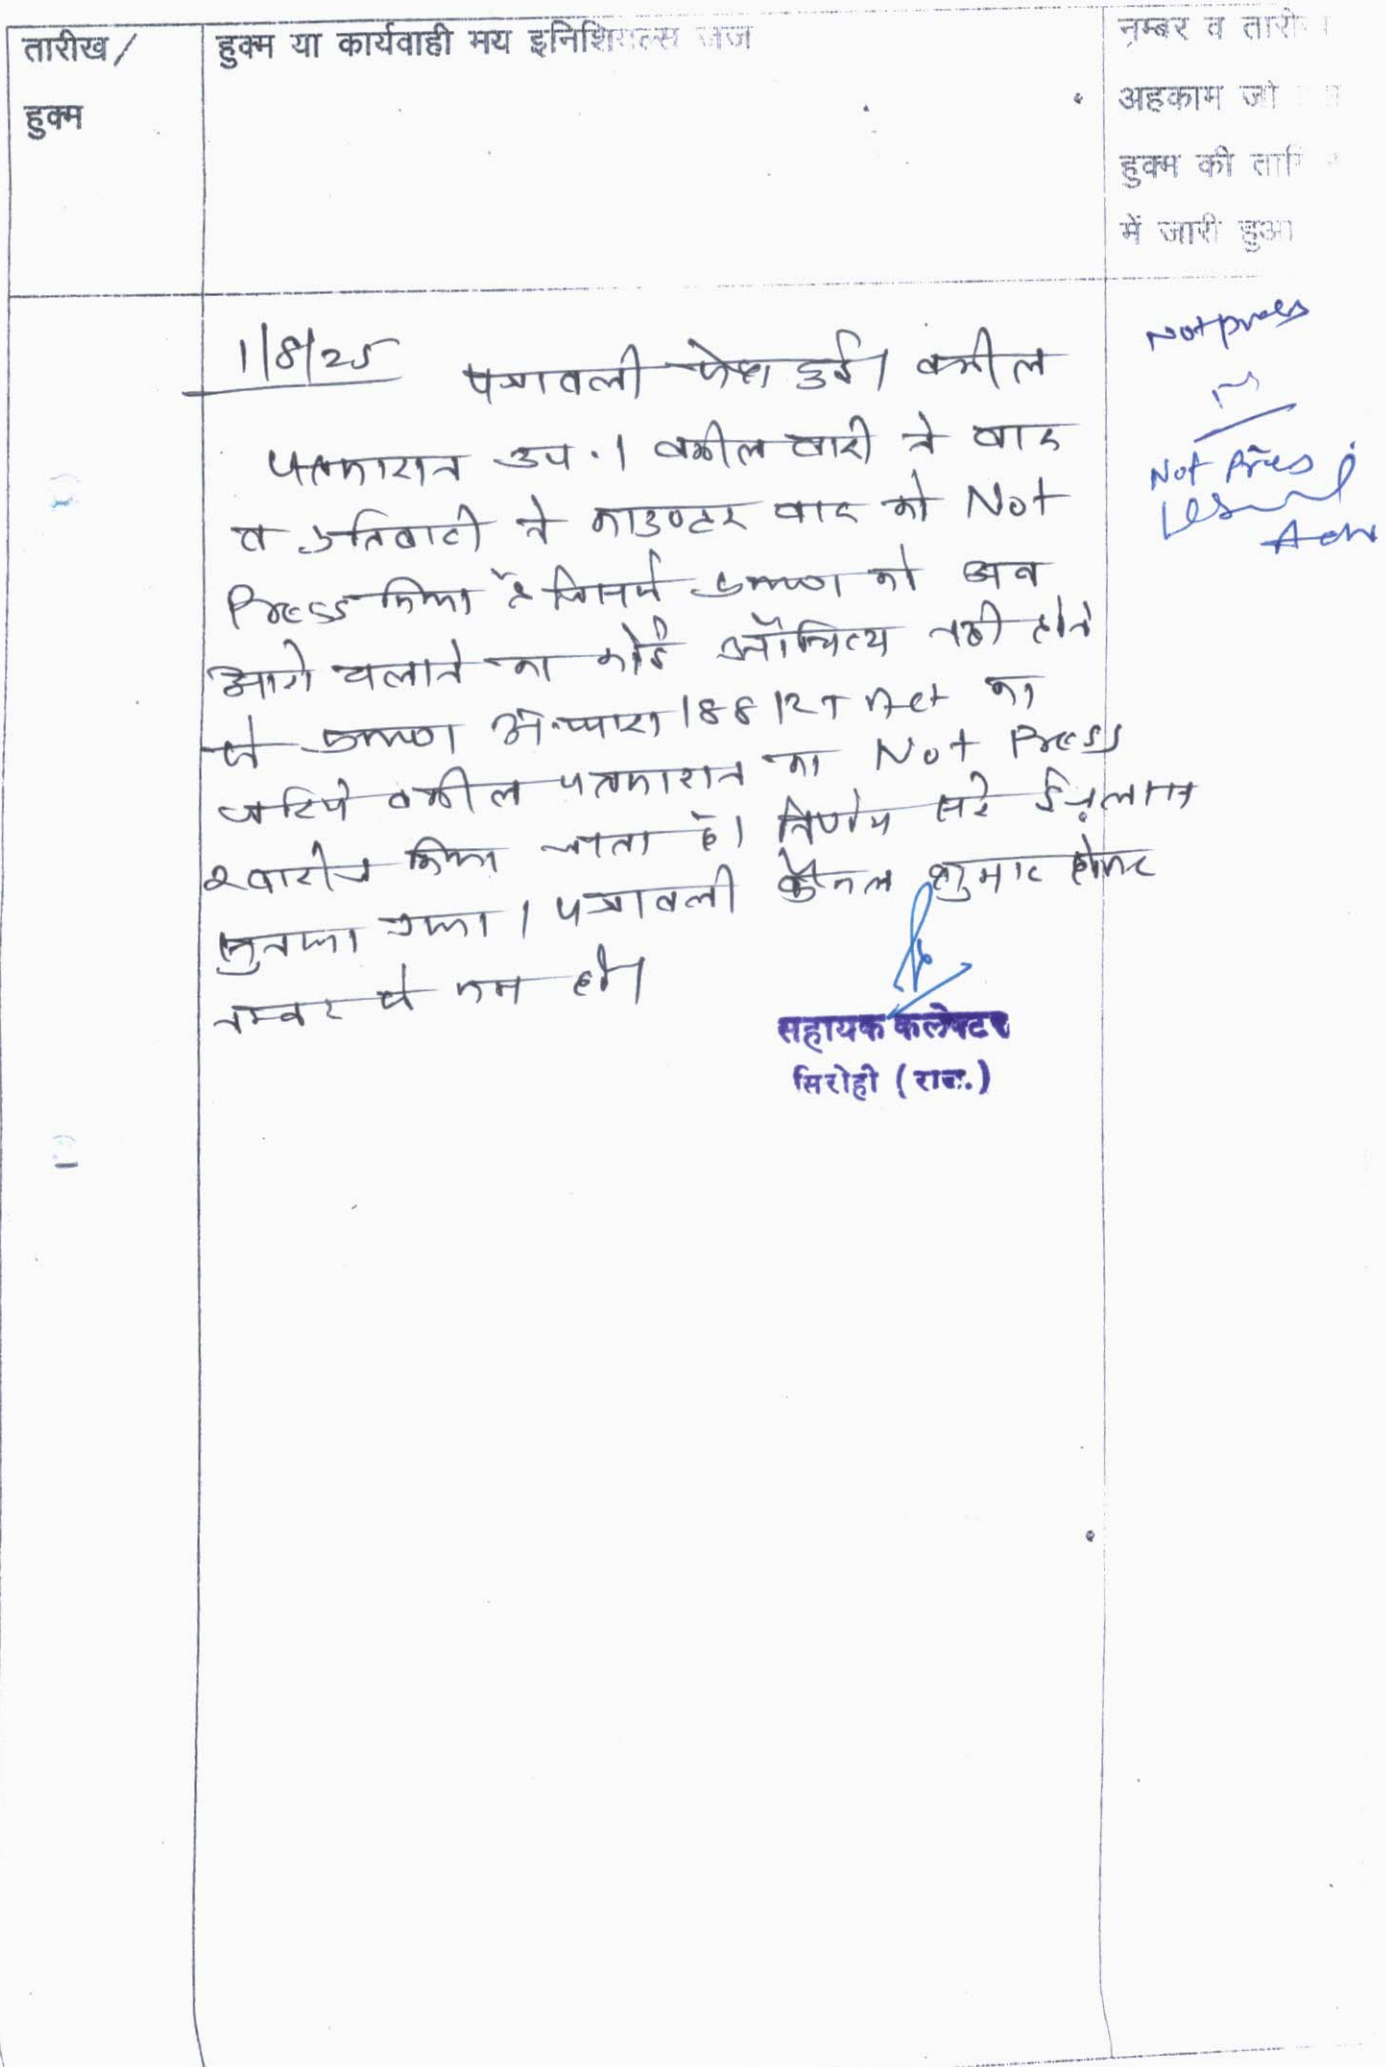 तारीख /
हुक्म
हुक्म या कार्यवाही मय इनिशियल्स जज
नम्बर व तारीख
अहकाम जो
हुक्म की तामि
में जारी हुआ
1/8/25 पत्रावली पेश हुई। वकील
पक्षकारान उप.। वकील वादी ने वाद
व प्रतिवादी ने काउण्टर वाद को Not
Press किया है जिससे प्रकरण को अब
आगे चलाने का कोई औचित्य नहीं होने
से प्रकरण अ.धारा 188 RT Act का
जरिये वकील पक्षकारान का Not Press
खारीज किया जाता है। निर्णय सरे इजलास
सुनाया गया। पत्रावली फैसल शुमार होकर
नम्बर से कम हो।
Not press
Not Press
Adv
सहायक कलेक्टर
सिरोही (राज.)